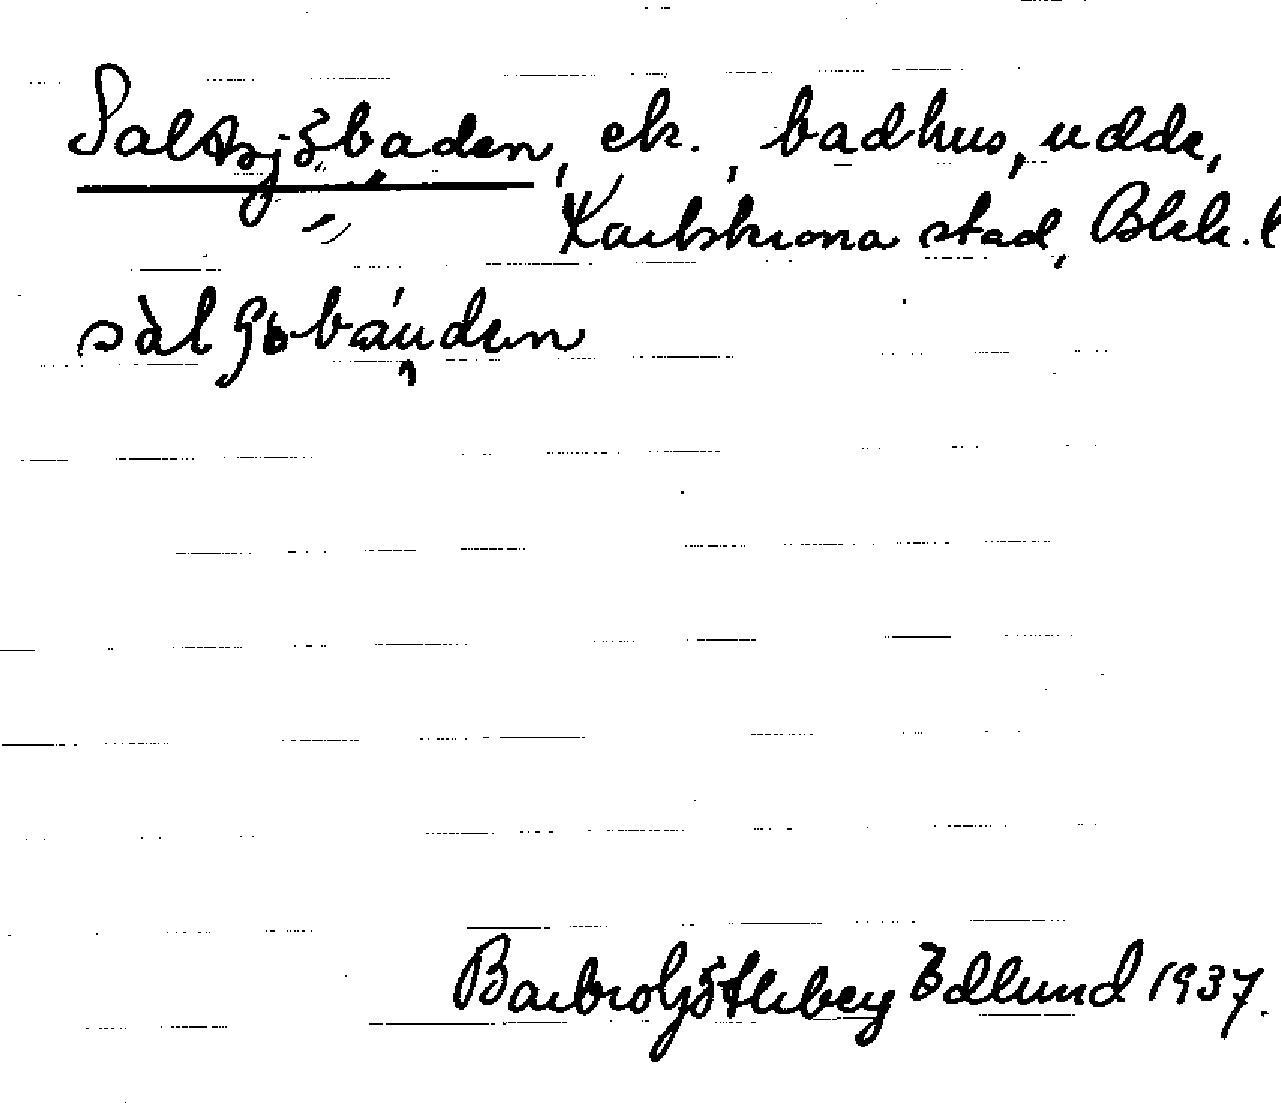 Saltsjöbaden, ek., badhus, udde,
Karlskrona stad, Blek. l
Barbro Götlibey Edlund 1937.